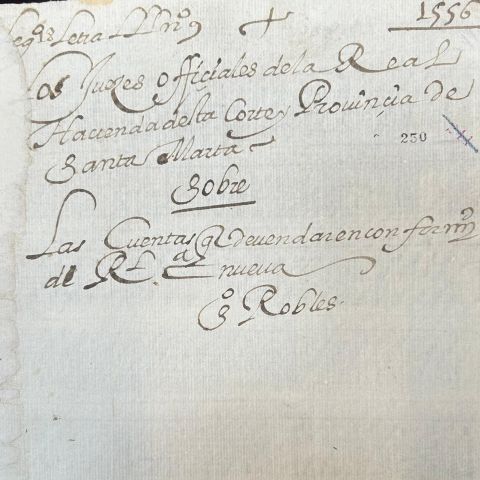 Leg.º 8 Letra LL nº 9 + 1556
Los Juezes officiales de la Real
Hacienda desta Corte y Provinçia de
Santa Marta
230
Sobre
Las Cuentas q deven dar en conform
de Rl. Cª nueva
Sº Robles.